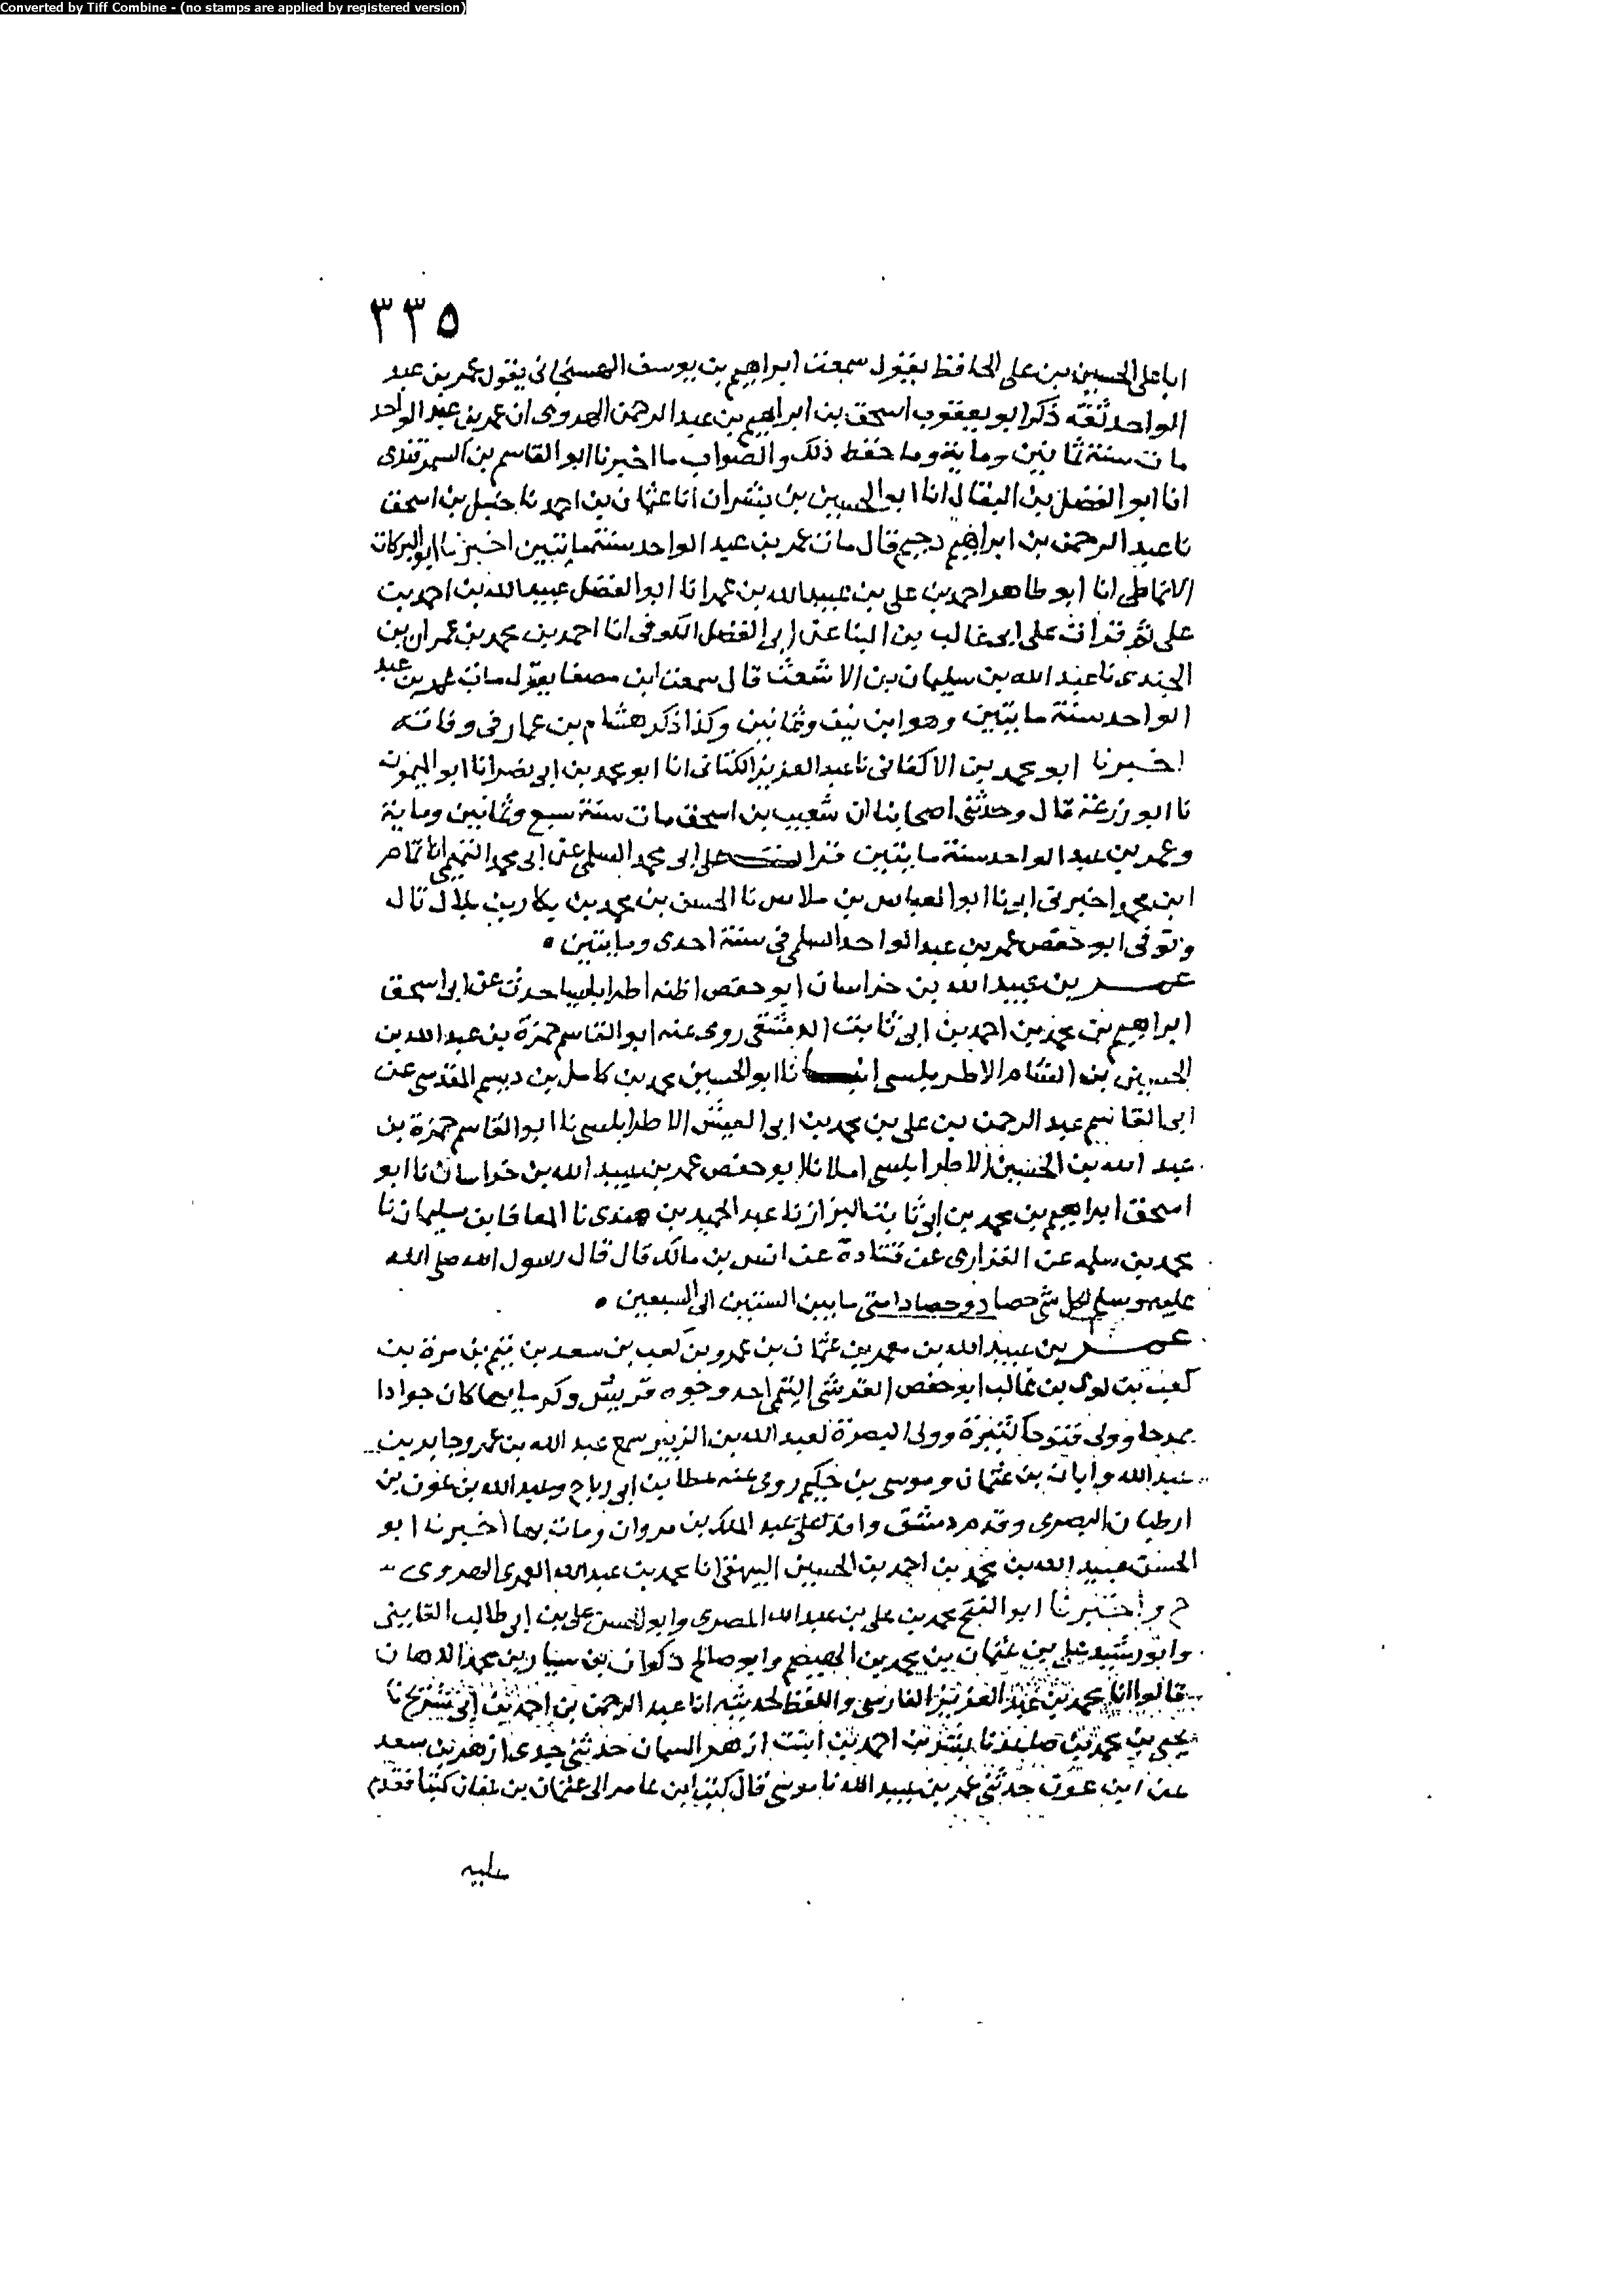 Converted by Tiff Combine - (no stamps are applied by registered version)
٣٣٥
ابا على الحسين بن على الحافظ يقول سمعت ابراهيم بن يوسف الهسنجانى يقول عمر بن عبد
الواحد ثقة ذكر ابو يعقوب اسحق بن ابراهيم بن عبد الرحمن الهروى ان عمر بن عبد الواحد
مات سنة ثمانين وماية وما حفظ ذلك والصواب ما اخبرنا ابو القاسم بن السمرقندى
انا ابو الفضل بن البقال انا ابو الحسين بن بشران انا عثمان بن احمد نا حنبل بن اسحق
نا عبد الرحمن بن ابراهيم دحيم قال مات عمر بن عبد الواحد سنة مايتين اخبرنا ابو البركات
الانماطى انا ابو طاهر احمد بن على بن عبيد الله بن عمر انا ابو الفضل عبيد الله بن احمد بن
على ثم قرات على ابى غالب بن البنا عن ابى الفضل الكوفى انا احمد بن محمد بن عمران بن
الجندى نا عبد الله بن سليمان بن الاشعث قال سمعت ابن مصفا يقول مات عمر بن عبد
الواحد سنة مايتين وهو ابن نيف وثمانين وكذا ذكر هشام بن عمار فى وفاته
اخبرنا ابو محمد بن الاكفانى نا عبد العزيز الكتانى انا ابو محمد بن ابى نصر انا ابو الميمون
نا ابو زرعة قال وحدثنى اصحابنا ان شعيب بن اسحق مات سنة سبع وثمانين وماية
وعمر بن عبد الواحد سنة مايتين قرات على ابى محمد السلمى عن ابى محمد التميمى انا تمام
ابن محمد اخبرنى ابى نا ابو العباس بن ملاس نا الحسن بن محمد بن بكار بن بلال قال
وتوفى ابو حفص عمر بن عبد الواحد السلمى فى سنة احدى ومايتين ٥
عمر بن عبيد الله بن خراسان ابو حفص اظنه اطرابلسيا حدث عن ابى اسحق
ابراهيم بن محمد بن احمد بن ابى ثابت الدمشقى روى عنه ابو القاسم حمزة بن عبد الله بن
الحسين بن الشام الاطربلسى انبانا ابو الحسين محمد بن كامل بن ديسم المقدسى عن
ابى القاسم عبد الرحمن بن على بن محمد بن ابى العيش الاطرابلسى نا ابو القاسم حمزة بن
عبد الله بن الحسين الاطرابلسى املا نا ابو حفص عمر بن عبيد الله بن خراسان نا ابو
اسحق ابراهيم بن محمد بن ابى ثابت البزاز نا عبد الحميد بن هندى نا المعافا بن سليمان نا
محمد بن سلمه عن الفزارى عن قتادة عن انس بن مالك قال قال رسول الله صلى الله
عليه وسلم لكل شى حصاد وحصاد امتى ما بين الستين الى السبعين ٥
عمر بن عبيد الله بن معمر بن عثمان بن عمرو بن كعب بن سعد بن تيم بن مرة بن
كعب بن لوى بن غالب ابو حفص القرشى التيمى احد وجوه قريش وكرمايها كان جوادا
ممدحا وولى فتوحا كثيرة وولى البصرة لعبد الله بن الزبير سمع عبد الله بن عمر وجابر بن
عبد الله وابان بن عثمان وموسى بن حكيم روى عنه عطا بن ابى رباح وعبد الله بن عون بن
ارطبان البصرى وقدم دمشق وافدا على عبد الملك بن مروان ومات بها اخبرنا ابو
الحسن عبيد الله بن محمد بن احمد بن الحسين البيهقى انا محمد بن عبد الله العمرى الهروى
ح واخبرنا ابو الفتح محمد بن على بن عبد الله المصرى وابو الحسن على بن ابى طالب القاينى
وابو رشيد على بن عثمان بن محمد بن الهيضم وابو صالح ذكوان بن سيار بن محمد الدهان
قالوا انا محمد بن عبد العزيز الفارسى واللفظ لحديثه انا عبد الرحمن بن احمد بن ابى شريح نا
يحيى بن محمد بن صاعد نا بشر بن احمد بن ابنت ازهر السمان حدثنى جدى ازهر بن سعد
عن ابن عون حدثنى عمر بن عبيد الله نا موسى قال كتب ابن عامر الى عثمان بن عفان كتبا فقدم
عليه